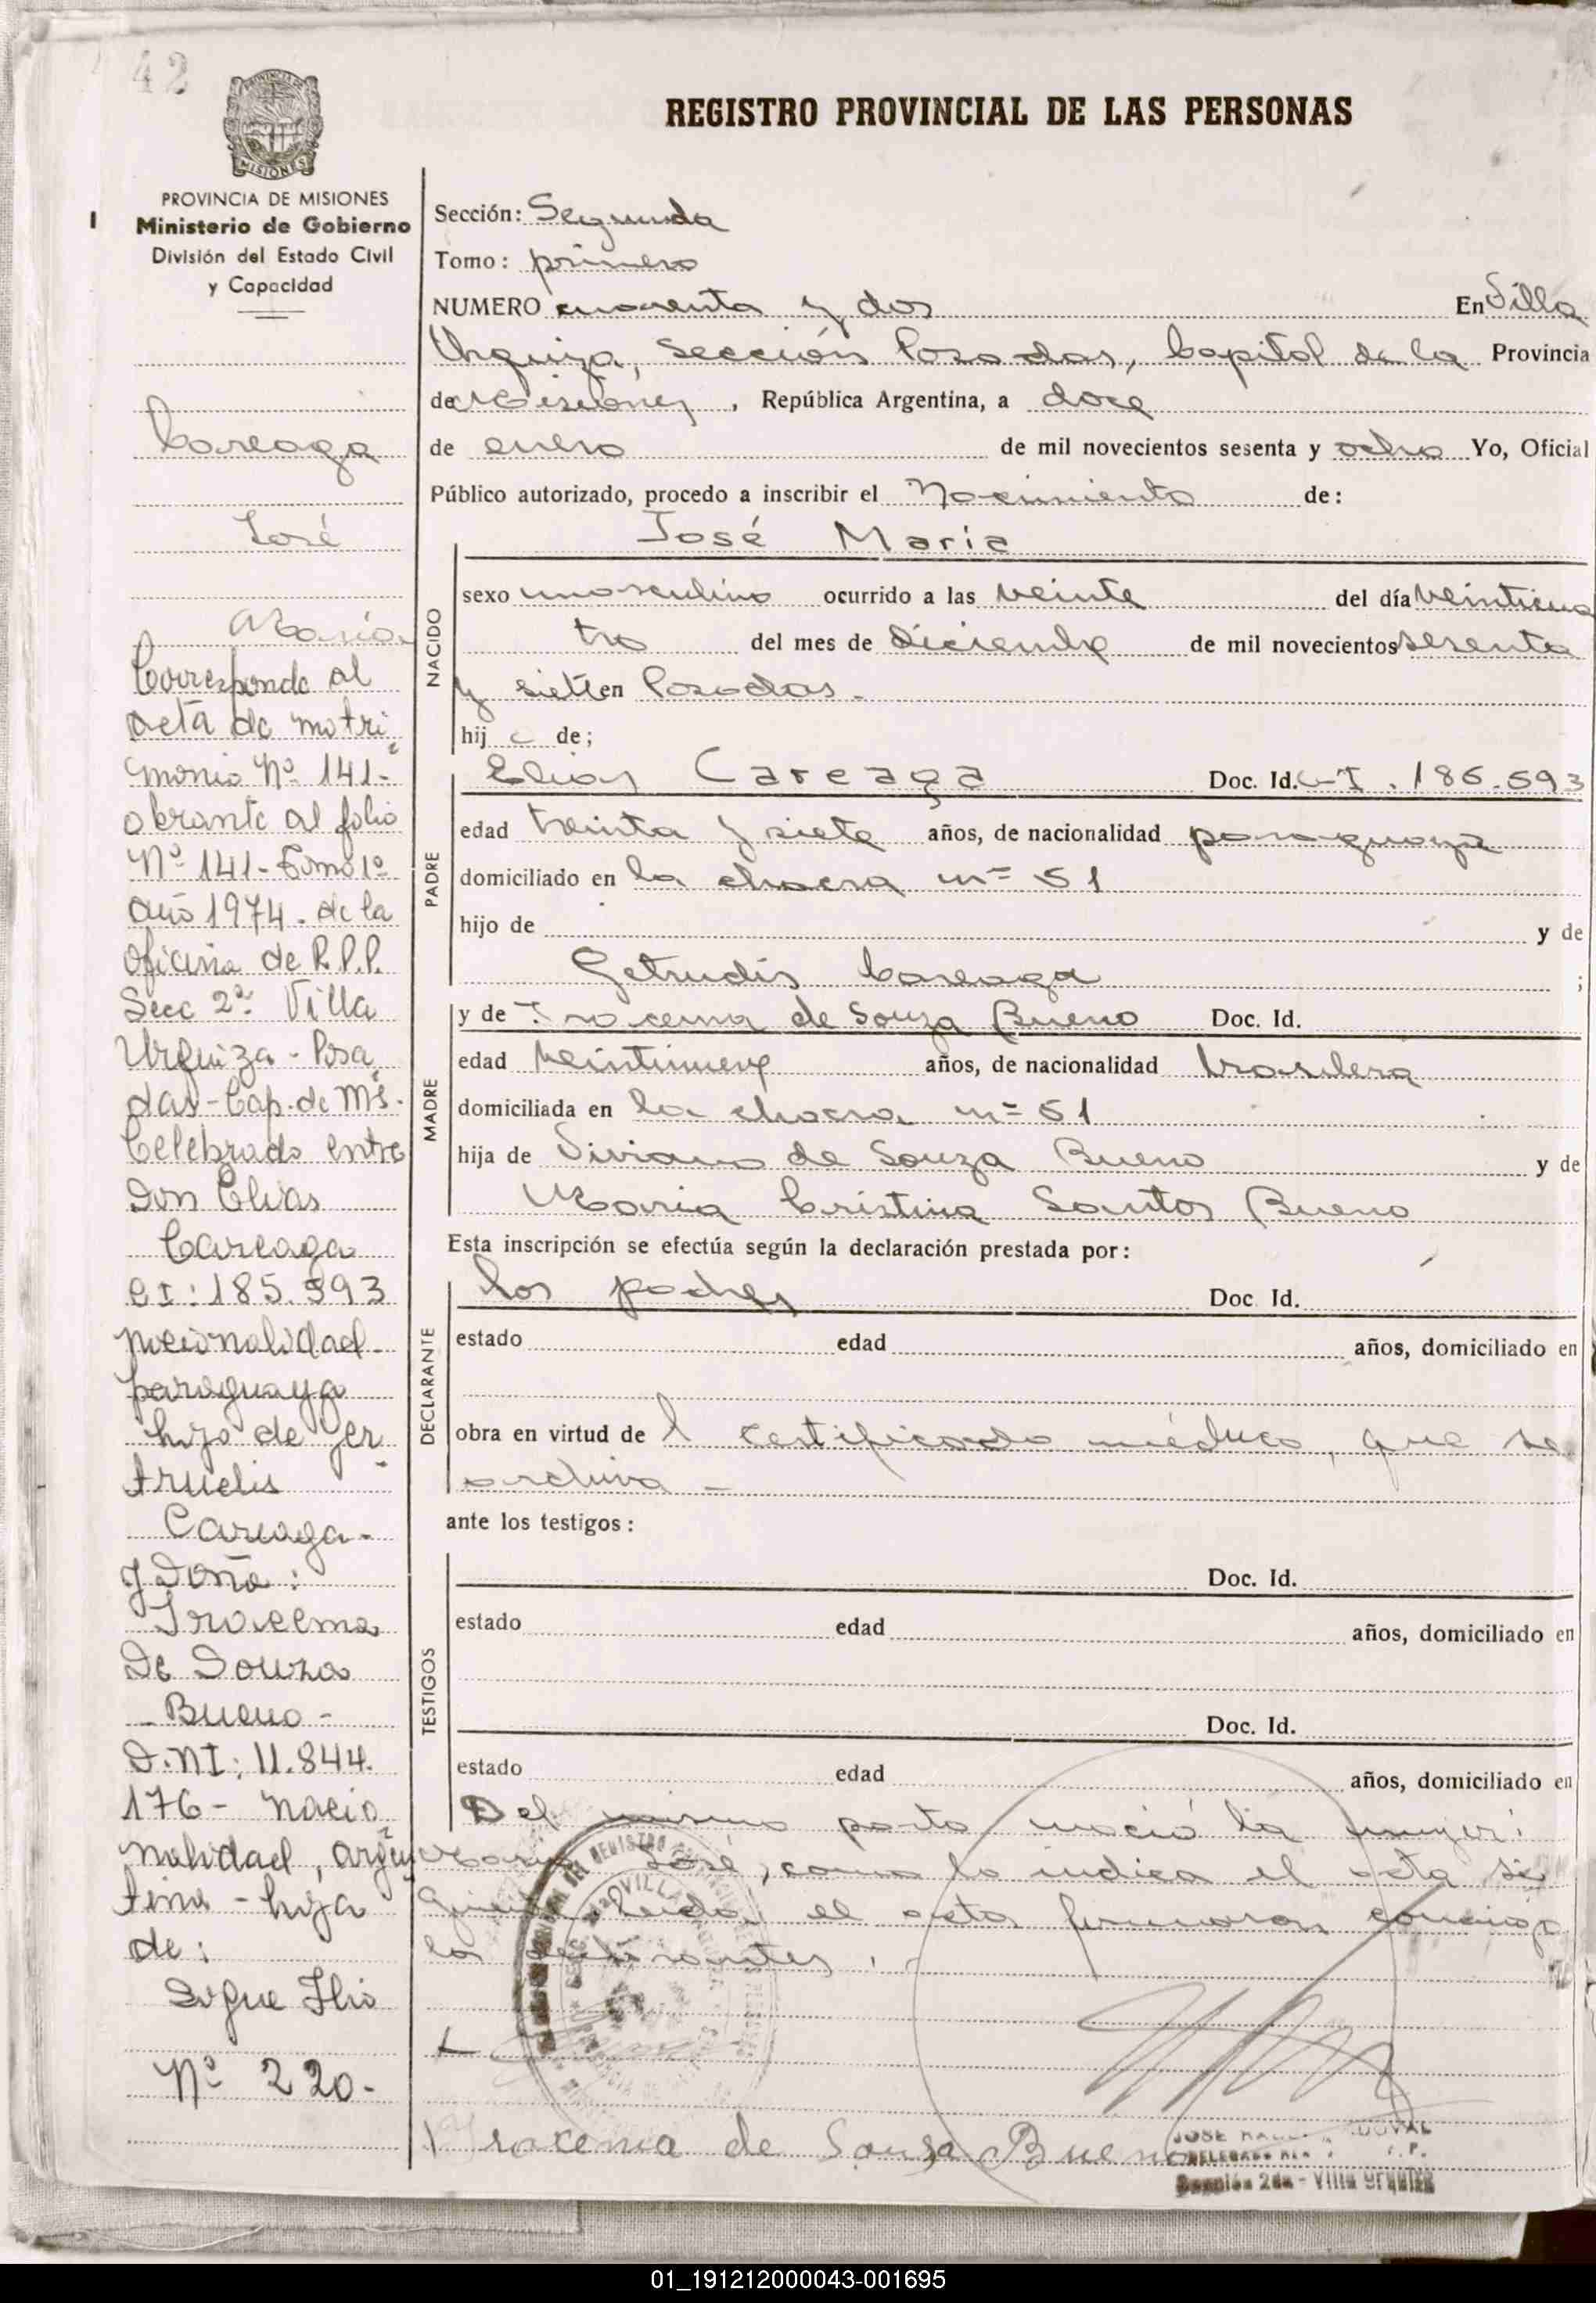 42
MISIONES
PROVINCIA DE MISIONES
Ministerio de Gobierno
División del Estado Civil
y Capacidad
Careaga
José
María
Corresponde al
acta de matri
monio Nº 141-
obrante al folio
Nº 141- Tomo 1º
año 1974. de la
oficina de R.P.P.
Secc 2ª Villa
Urquiza - Posa
das - Cap. de Ms.
Celebrado entre
Don Elias
Careaga
CI: 185.593
nacionalidad
paraguaya
hijo de Ger
trudis
Careaga-
y Doña:
Iracema
De Souza
- Bueno -
D.NI: 11.844.
176- nacio
nalidad, argen
tina - hija
de:
Sigue Flio
Nº 220-
REGISTRO PROVINCIAL DE LAS PERSONAS
Sección: Segunda
Tomo: primero
NUMERO cuarenta y dos En Villa
Urquiza, Sección Posadas, Capital de la Provincia
de Misiones, República Argentina, a doce
de enero de mil novecientos sesenta y ocho Yo, Oficial
Público autorizado, procedo a inscribir el Nacimiento de:
José Maria
NACIDO
sexo masculino ocurrido a las veinte del día veinticua
tro del mes de diciembre de mil novecientos sesenta
y siete en Posadas.
hij o de;
PADRE
Elias Careaga Doc. Id. C-I. 185.593
edad treinta y siete años, de nacionalidad paraguaya
domiciliado en la chacra nº 51
hijo de y de
Getrudis Careaga ;
MADRE
y de Iracema de Souza Bueno Doc. Id.
edad veintinueve años, de nacionalidad brasilera
domiciliada en la chacra nº 51
hija de Viviano de Souza Bueno y de
Maria Cristina Santos Bueno
Esta inscripción se efectúa según la declaración prestada por:
DECLARANTE
los padres Doc. Id.
estado edad años, domiciliado en
obra en virtud de l certificado médico, que se
archiva -
ante los testigos:
TESTIGOS
Doc. Id.
estado edad años, domiciliado en
Doc. Id.
estado edad años, domiciliado en
Del mismo parto nació la mujer:
Maria José, como lo indica el acta si
guiente leida el acta firmaron conmigo
los declarantes.
Iracema de Sousa Bueno
JOSE
DELEGADO
Sección 2da - Villa Urquiza
01_191212000043-001695